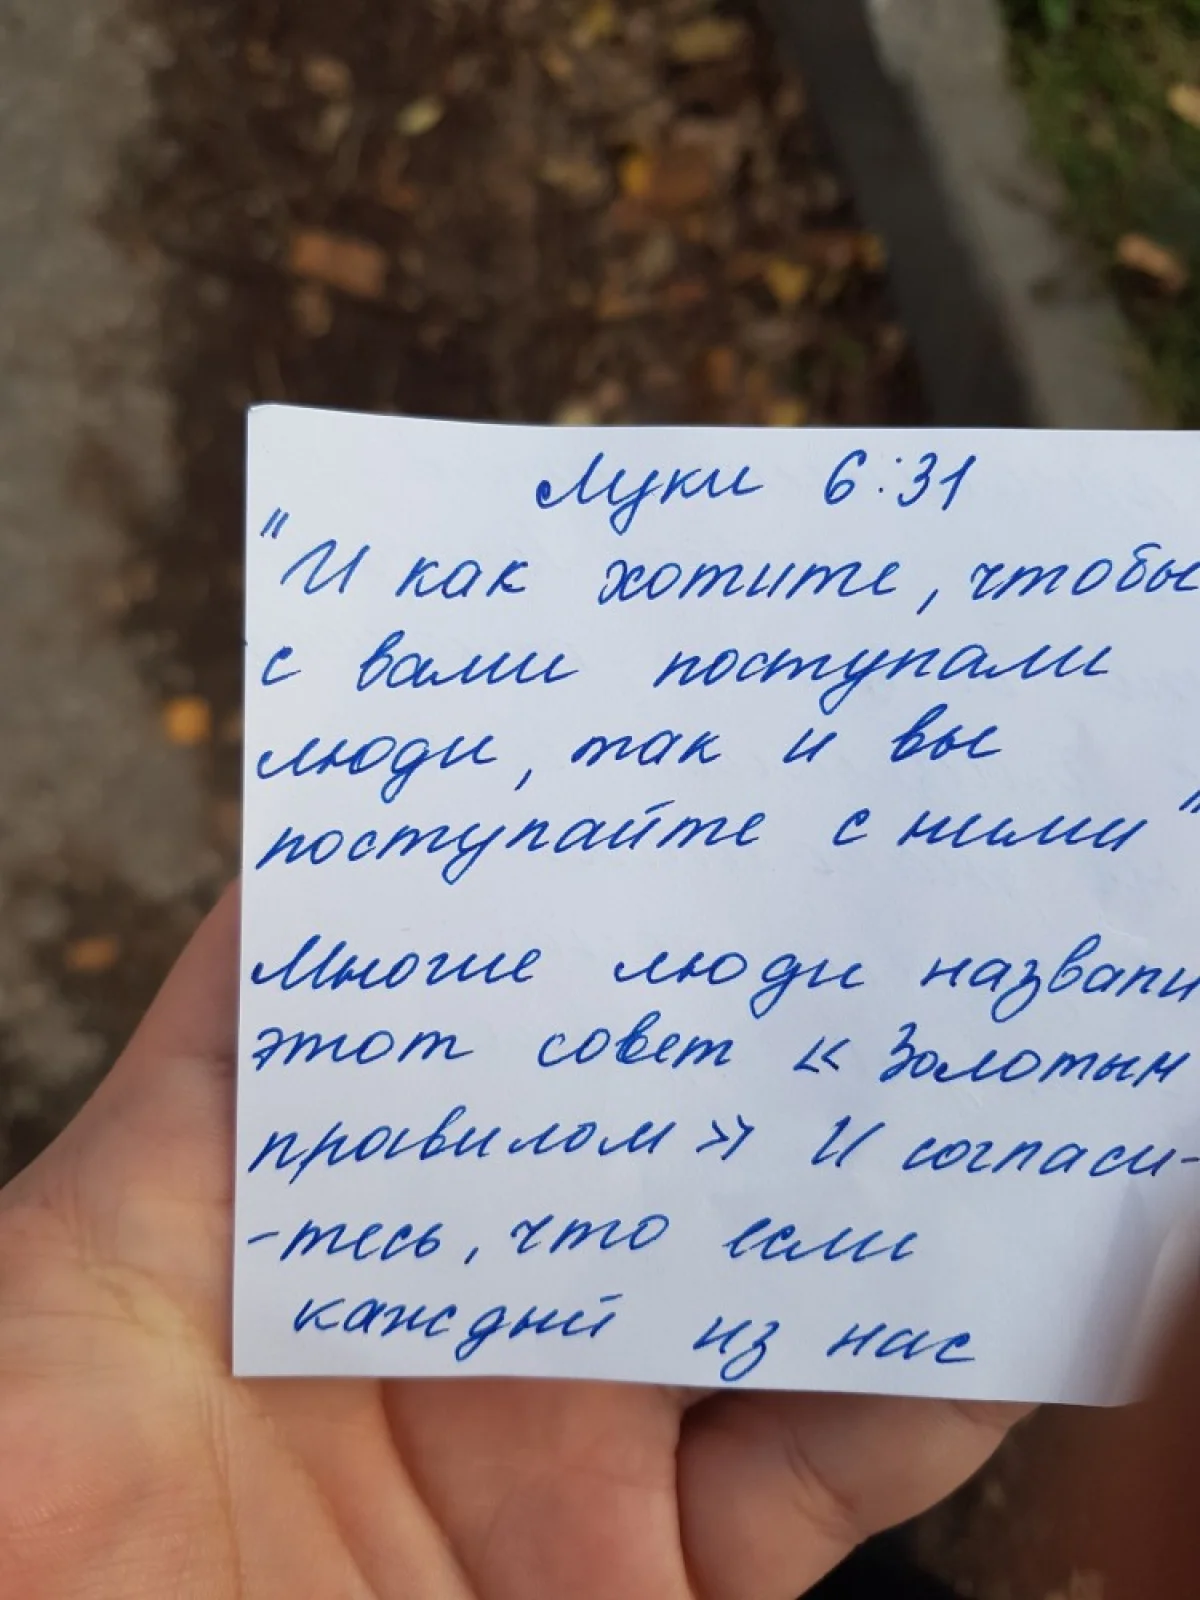 Луки 6:31
"И как хотите, чтобы
с вами поступали
люди, так и вы
поступайте с ними"
Многие люди назвали
этот совет «Золотым
правилом» И согласи-
-тесь, что если
каждый из нас